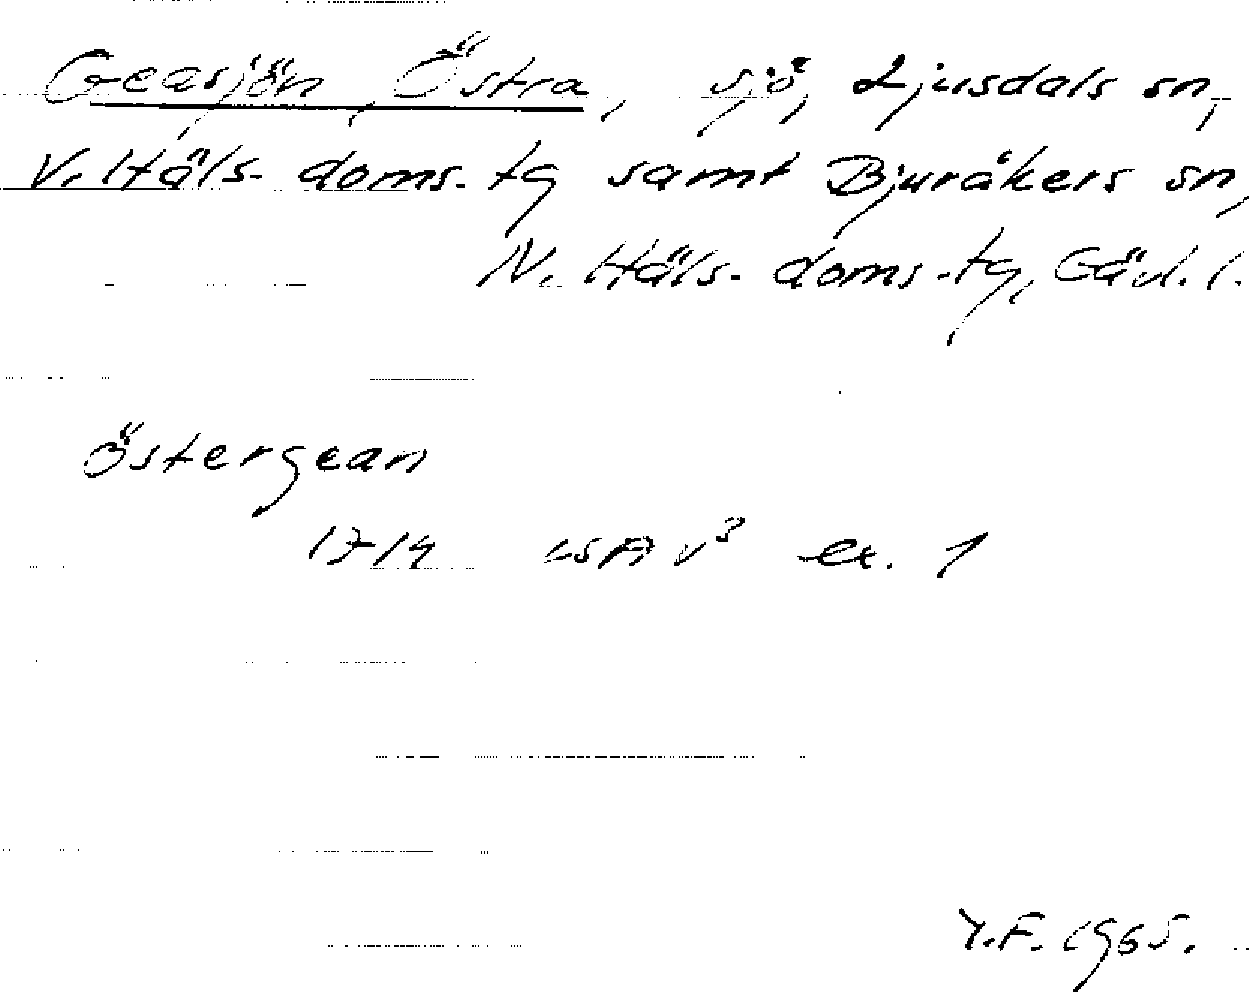 Geasjön, Östra, sjö, Ljusdals sn,
V. Häls. doms. tg samt Bjuråkers sn,
N. Häls. doms. tg, Gävl. l.
Östergean
1714 LSA v³ ex. 1
Y.F. 1965.